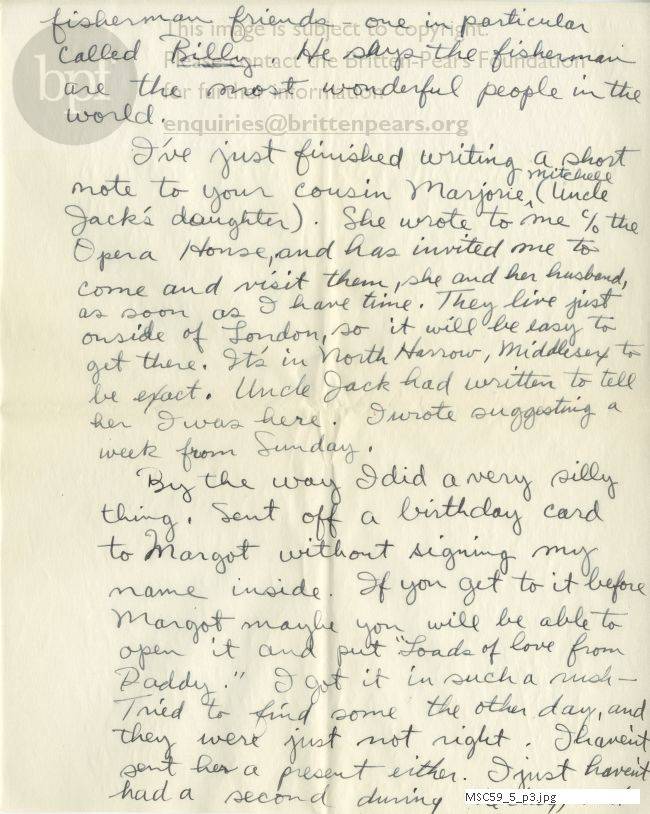 fisherman friends - one in particular
This image is subject to copyright.
called Billy. He says the fisherman
Please contact the Britten-Pears Foundation
bpf
are the most wonderful people in the
for further information
world.
enquiries@brittenpears.org
I've just finished writing a short
note to your cousin Marjorie Mitchell, (Uncle
Jack's daughter). She wrote to me c/o the
Opera House, and has invited me to
come and visit them, she and her husband,
as soon as I have time. They live just
ouside of London, so it will be easy to
get there. It's in North Harrow, Middlesex to
be exact. Uncle Jack had written to tell
her I was here. I wrote suggesting a
week from Sunday.
By the way I did a very silly
thing. Sent off a birthday card
to Margot without signing my
name inside. If you get to it before
Margot maybe you will be able to
open it and put "Loads of love from
Daddy." I got it in such a rush -
Tried to find some the other day, and
they were just not right. I haven't
sent her a present either. I just haven't
had a second during
MSC59_5_p3.jpg